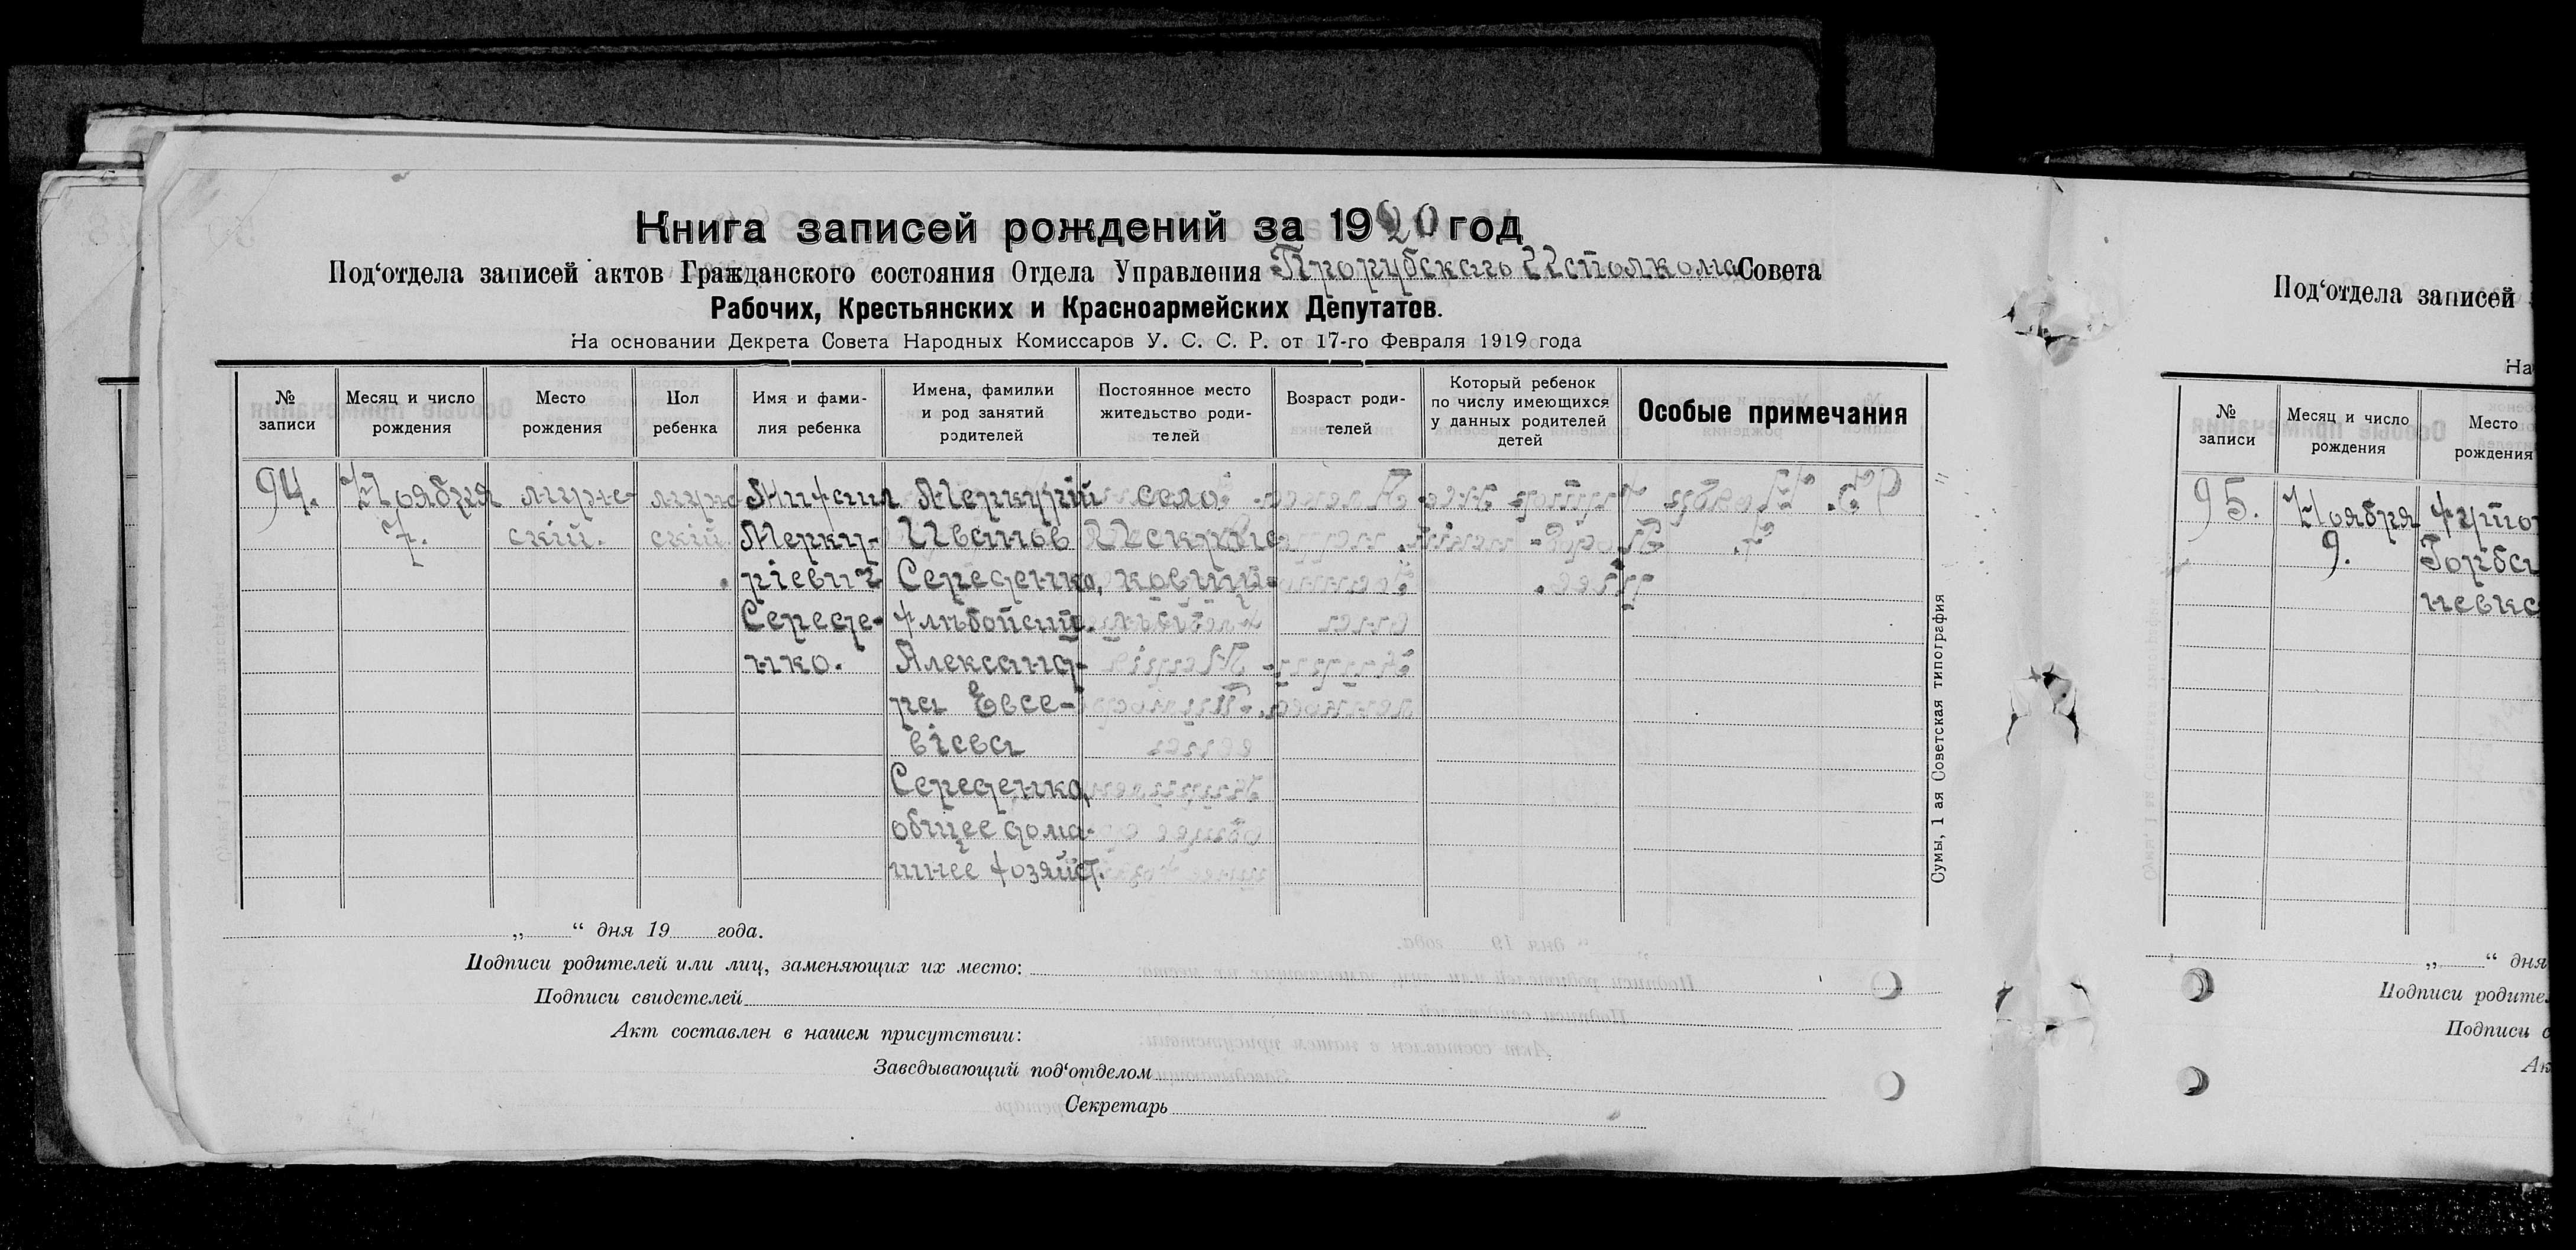 Книга записей рождений за 1920 год
Под‘отдела записей актов Гражданского состояния Отдела Управления Прорубскаго Исполкома Совета
Рабочих, Крестьянских и Красноармейских Депутатов.
На основании Декрета Совета Народных Комиссаров У. С. С. Р. от 17-го Февраля 1919 года
№ записи
Месяц и число рождения
Место рождения
Пол ребенка
Имя и фамилия ребенка
Имена, фамилии и род занятий родителей
Постоянное место жительство родителей
Возраст родителей
Который ребенок по числу имеющихся у данных родителей детей
Особые примечания
94.
Ноября
7.
муж-
ский.
муж-
ский.
Михаил
Мерку-
ріевич
Середе-
нко.
Меркурій
Иванов
Середенко,
хлѣбопаш.
Александ-
ра Евсе-
віева
Середенко,
общее дома-
шнее хозяйст.
село
Искрис-
ковщи-
Сумы, 1 ая Советская типография
„ “ дня 19 года.
Подписи родителей или лиц, заменяющих их место:
Подписи свидетелей
Акт составлен в нашем присутствии:
Заведывающий под‘отделом
Секретарь
Под‘отдела записей
На
№ записи
Месяц и число рождения
Место рождения
95.
Ноября
9.
хутор
„ “ дня
Подписи
Подписи